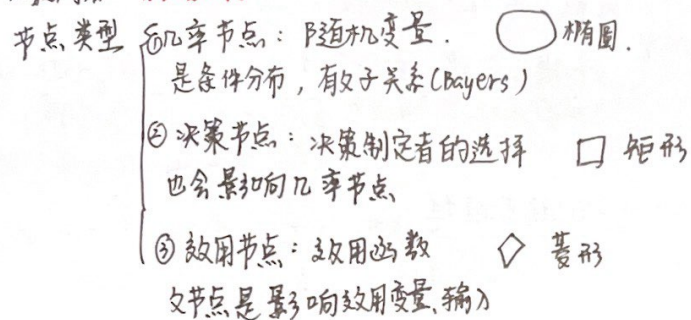 节点类型 ①几率节点：随机变量. 椭圆.
是条件分布，有父子关系(Bayers)
②决策节点：决策制定者的选择 矩形
也会影响几率节点
③效用节点：效用函数 菱形
父节点是影响效用变量、输入